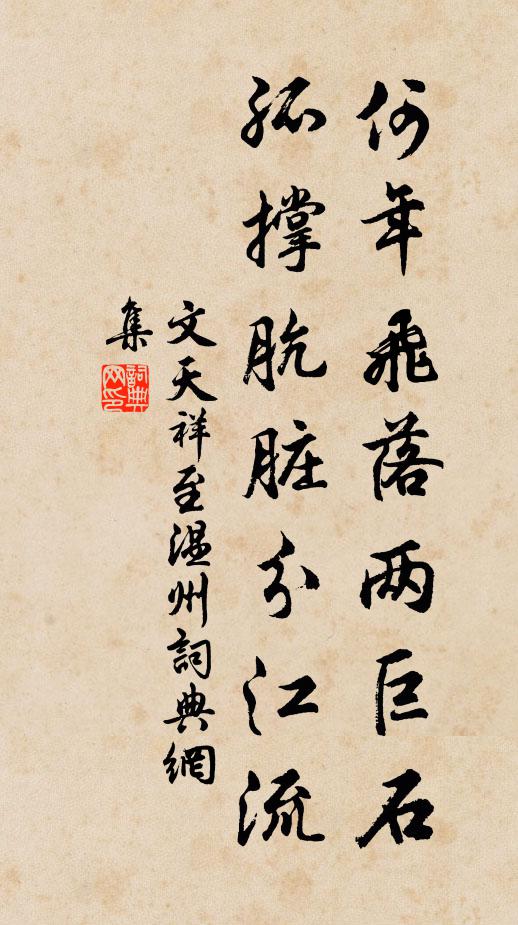 何年飛落两巨石
孤撐肮脏分江流
文天祥至温州詞典網
集
詞典
网印